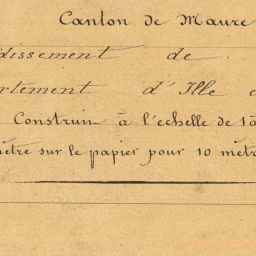 Canton de Maure
dissement de
rtement d'Ille e
Construit à l'échelle de 1à
ètre sur le papier pour 10 mètr